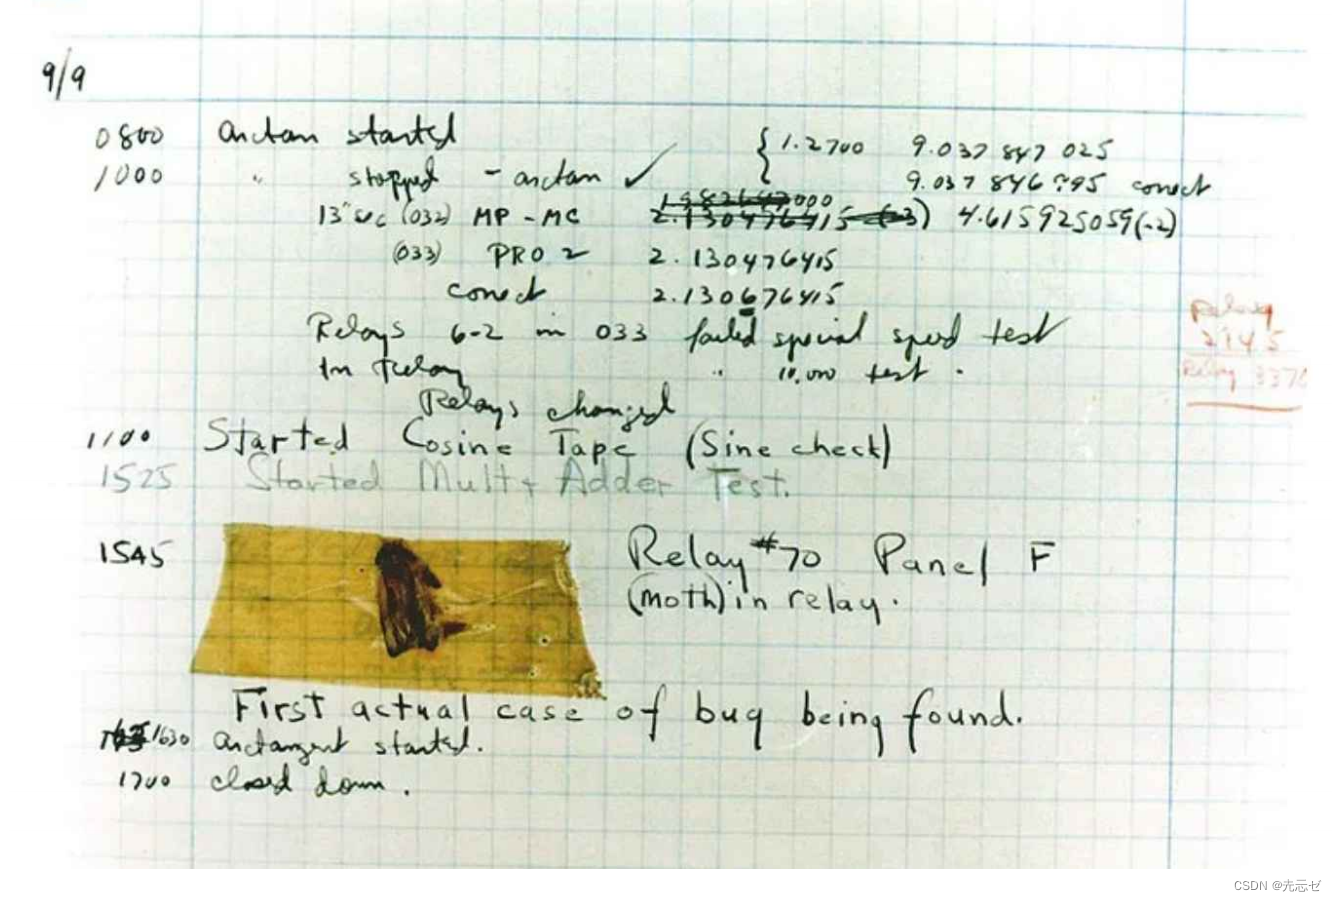 9/9
0800 arctan started { 1.2700 9.037 847 025
1000 " stopped - arctan ✓ 9.037 846 995 correct
000
13" sec (032) MP - MC 2.130476415 (-3) 4.615925059(-2)
(033) PRO 2 2.130476415
correct 2.130676415
Relays 6-2 in 033 failed special speed test
In Relay " 10,000 test .
Relay
2145
Relay 3370
Relays changed
1100 Started Cosine Tape (Sine check)
1525 Started Mult + Adder Test.
1545 Relay #70 Panel F
(moth) in relay.
First actual case of bug being found.
1630 arctangent started.
1700 closed down .
CSDN @先忘ゼ